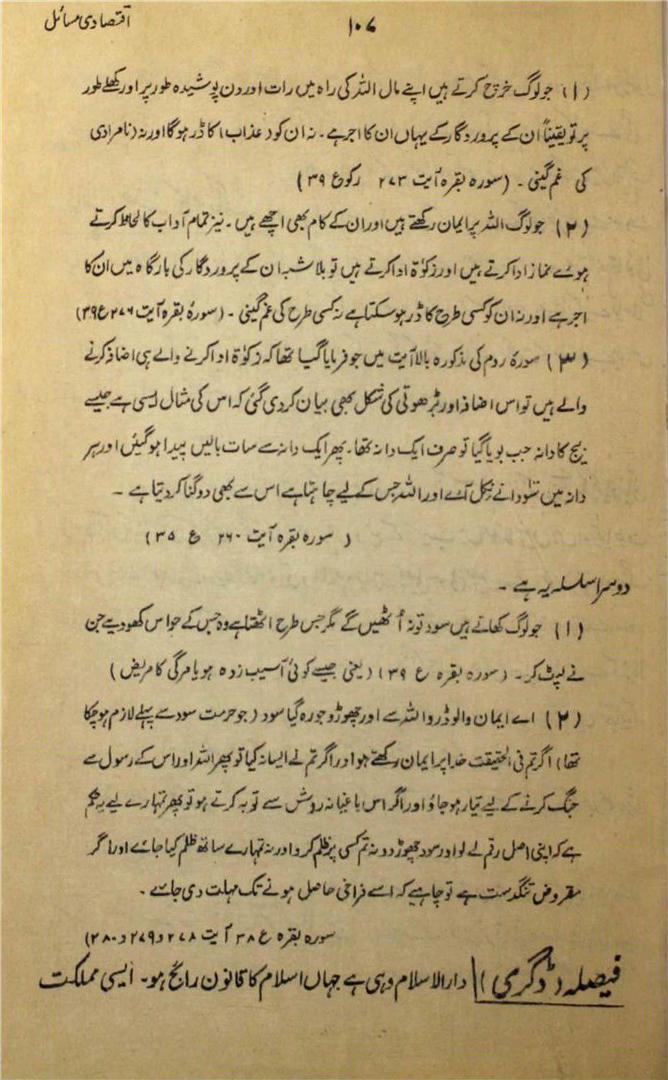 ۱۰۷
اقتصادی مسائل
(۱) جو لوگ خرچ کرتے ہیں اپنے مال اللہ کی راہ میں رات اور دن پوشیدہ طور پر اور کھلے طور
پر تو یقیناً ان کے پروردگار کے یہاں ان کا اجر ہے ۔ نہ ان کو (عذاب) کا ڈر ہوگا اور نہ (نامرادی
کی غم گینی ۔ (سورہ بقرہ آیت ۲۷۳ رکوع ۳۹)
(۲) جو لوگ اللہ پر ایمان رکھتے ہیں اور ان کے کام بھی اچھے ہیں ۔ نیز تمام آداب کا لحاظ کرتے
ہوئے نماز ادا کرتے ہیں اور زکوٰۃ ادا کرتے ہیں تو بلاشبہ ان کے پروردگار کی بارگاہ میں ان کا
اجر ہے اور نہ ان کو کسی طرح کا ڈر ہوسکتا ہے نہ کسی طرح کی غم گینی ۔ (سورۂ بقرہ آیت ۲۷۶ ع ۳۹)
(۳) سورۂ روم کی مذکورہ بالا آیت میں جو فرمایا گیا تھا کہ زکوٰۃ ادا کرنے والے ہی اضافہ کرنے
والے ہیں تو اس اضافہ اور بڑھوتی کی شکل بھی بیان کردی گئی کہ اس کی مثال ایسی ہے جیسے
بیج کا دانہ جب بویا گیا تو صرف ایک دانہ تھا۔ پھر ایک دانہ سے سات بالیں پیدا ہوگئیں اور ہر
دانہ میں سَو دانے نکل آئے اور اللہ جس کے لیے چاہتا ہے اس سے بھی دوگنا کردیتا ہے ۔
( سورہ بقرہ آیت ۲۶۰ ع ۳۵ )
دوسرا سلسلہ یہ ہے ۔
(۱) جو لوگ کھاتے ہیں سود تو نہ اُٹھیں گے مگر جس طرح اٹھتا ہے وہ جس کے حواس کھو دیے جن
نے لپٹ کر ۔ (سورہ بقرہ ع ۳۹) (یعنی جیسے کوئی آسیب زدہ ہو یا مرگی کا مریض )
(۲) اے ایمان والو ڈرو اللہ سے اور چھوڑو جو رہ گیا سود (جو حرمت سود سے پہلے لازم ہوچکا
تھا) اگر تم فی الحقیقت خدا پر ایمان رکھتے ہو اور اگر تم نے ایسا نہ کیا تو پھر اللہ اور اس کے رسول سے
جنگ کرنے کے لیے تیار ہو جاؤ اور اگر اس باغیانہ روش سے توبہ کرتے ہو تو پھر تمہارے لیے یہ حکم
ہے کہ اپنی اصل رقم لے لو اور سود چھوڑ دو نہ تم کسی پر ظلم کرو اور نہ تمہارے ساتھ ظلم کیا جائے اور اگر
مقروض تنگدست ہے تو چاہیے کہ اسے فراخی حاصل ہونے تک مہلت دی جائے ۔
سورہ بقرہ ع ۳۸ آیت ۲۷۸ و ۲۷۹ و ۲۸۰)
فیصلہ (ڈگری) دارالاسلام وہی ہے جہاں اسلام کا قانون رائج ہو۔ ایسی مملکت